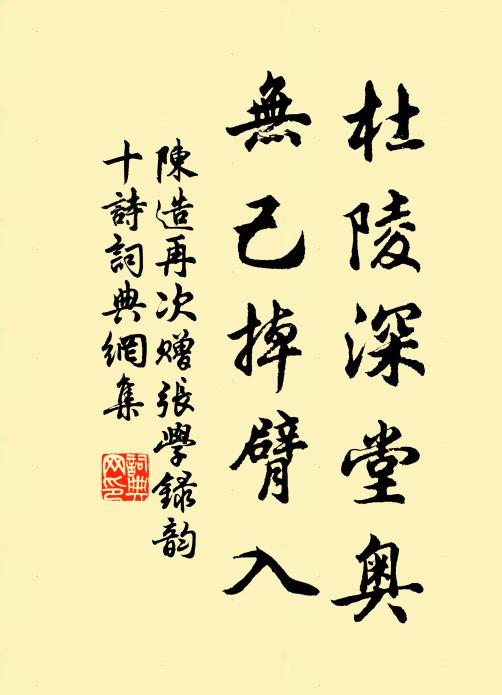 杜陵深堂奧
無己掉臂入
陳造再次贈張學録韵
十詩詞典網集
詞典网印